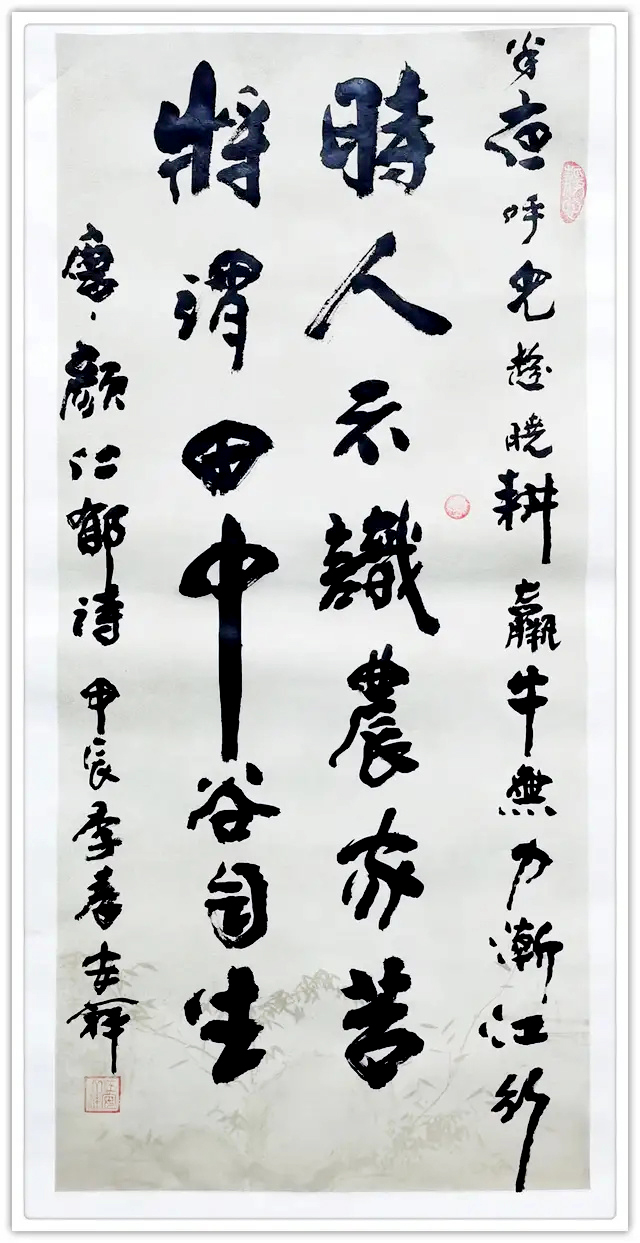 半夜呼兒趁曉耕羸牛無力漸江行
時人不識農家苦
將謂田中谷自生
唐、顏仁郁詩 甲辰季春